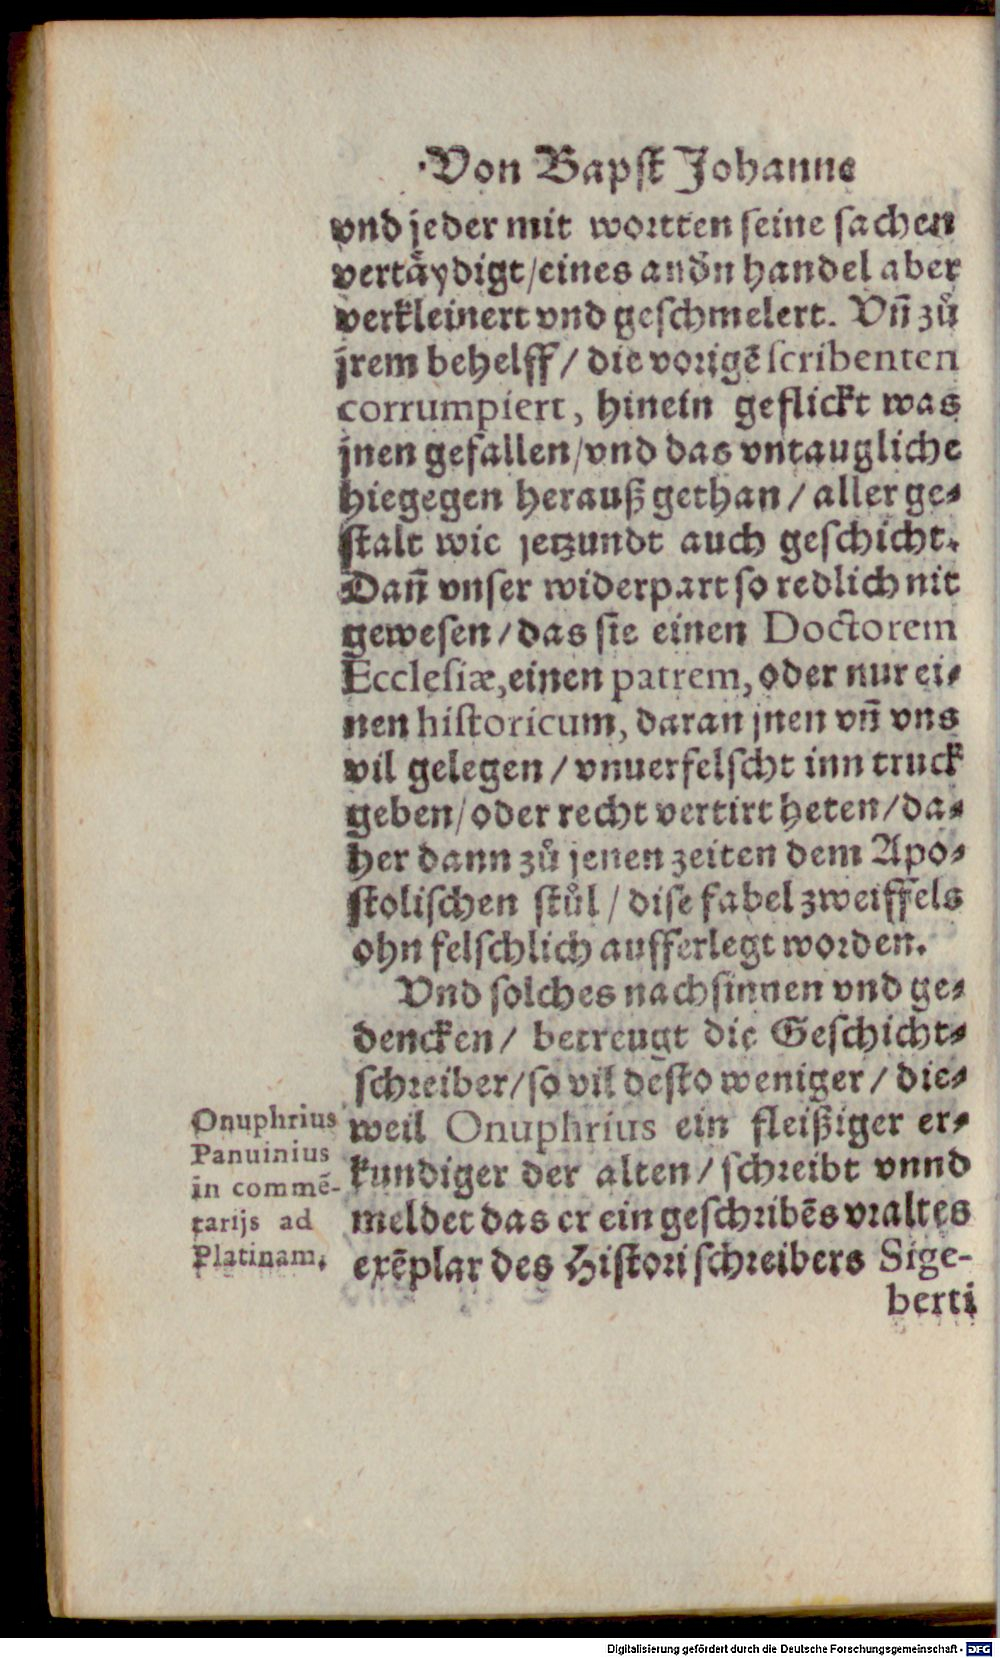 Von Bapst Johanne
vnd jeder mit wortten seine sachen
vertäydigt/eines andn̄ handel aber
verkleinert vnd geschmelert. Vn̄ zů
jrem behelff / die vorigē scribenten
corrumpiert, hinein geflickt was
jnen gefallen/vnd das vntaugliche
hiegegen herauß gethan / aller ge-
stalt wie jetzundt auch geschicht.
Dan̄ vnser widerpart so redlich nit
gewesen/das sie einen Doctorem
Ecclesiæ,einen patrem, oder nur ei-
nen historicum, daran jnen vn̄ vns
vil gelegen / vnuerfelscht inn truck
geben/oder recht vertirt heten/da-
her dann zů jenen zeiten dem Apo-
stolischen stůl / dise fabel zweiffels
ohn felschlich aufferlegt worden.
Vnd solches nachsinnen vnd ge-
dencken/ betreugt die Geschicht-
schreiber/so vil desto weniger / die-
weil Onuphrius ein fleißiger er-
kundiger der alten/schreibt vnnd
meldet das er ein geschribēs vraltes
exēplar des Histori schreibers Sige-
berti
Onuphrius
Panuinius
in commē-
tarijs ad
Platinam.
Digitalisierung gefördert durch die Deutsche Forschungsgemeinschaft - DFG